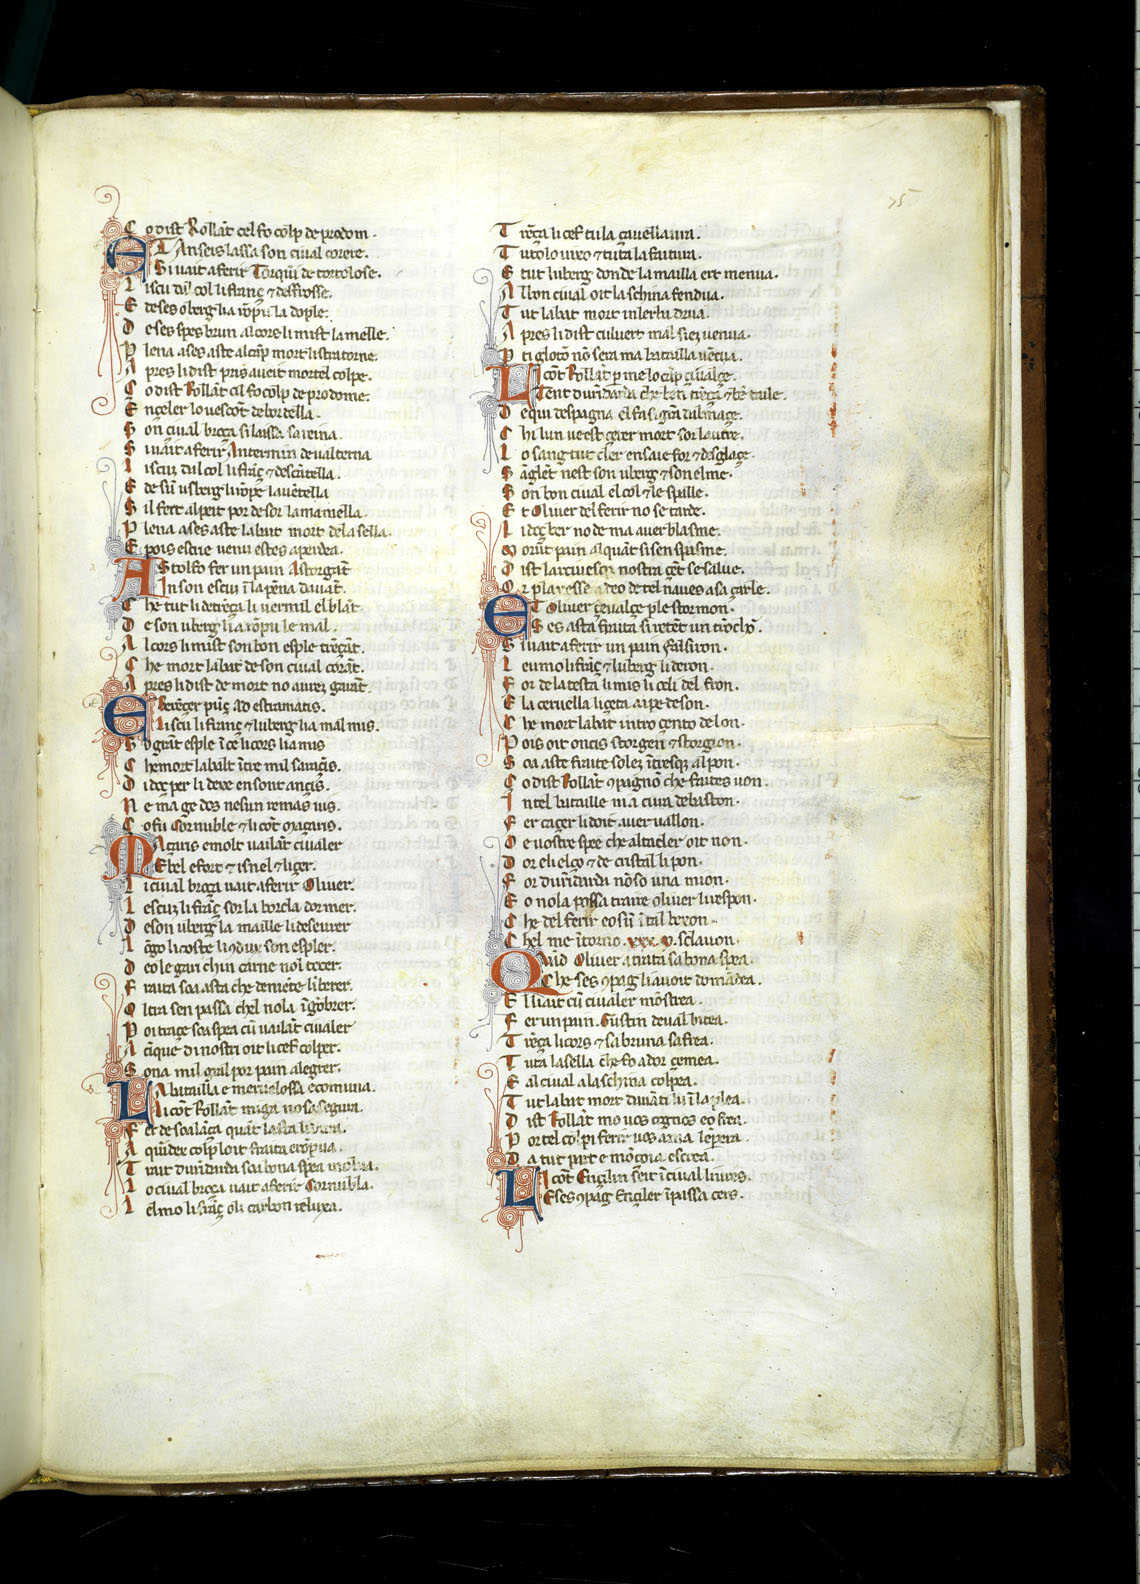 75
C o dist Rollāt cel fo colp de prodom.
E T Anseis lassa son cival corere.
S i vait a ferir Torqui de tortolose.
L iscu del col li franç 7 desfrosse.
E de ses oberg li a ropu la dople.
D e ses spes brun al cors li mist la melle.
P lena a ses aste al camp mort li stratorne.
A pres li dist pris aveiz mortel colpe.
C o dist Rollāt cil fo colp de prodome.
E ngeler lo vescōt de bordella.
S on cival broça si laissa sa reina.
S i vait a ferir Antermin de valterna
L iscuz dal col li franç 7 descātella.
E de sun usberg li rōpe la vētella
S il fert al peit por desor la mamella.
P lena a ses aste labat mort de la sella.
E pois escrie venu estes a perdea.
A Stolfo fer un pain Astorgāt
I n son escu in la pena davāt.
C he tut li detrēça li vermil el blāt
D e son uberg li a rōpu le mal.
A l cors li mist son bon esple trēçāt.
C he mort labat de son cival corāt.
A pres li dist de mort no avrez garāt.
E Berēger puis Ad estramatis.
L i scu li franç 7 luberg li a mal mis.
S o grāt esple ī ce li cors li a mis
C he mort labatt ītre mil saraçis.
D i doç per li deve en son ē ancis.
N e ma ge dos nesun remās vis.
C o fu Cornuble 7 li cōt Margaris.
M Argaris e molt vailāt civaler
E bel e fort 7 isnel 7 liger.
L i cival broça vait a ferir Oliver.
L escuz li franç sor la bocla dor mer.
D e son uberg la maille li desevrer
L ōgo li coste li ɔdux son espler.
D eo le gari ch in carne noi tocer.
F raita soa asta che de mete li berer.
O ltra sen passa chel nola īgōbrer.
P oi traçe soa spea cū vailāt civaler
A cīque di nostri oit li cef colper.
S ona mil gral por pain alegrer.
L A batailla e mervelossa e comuna.
L i cōt Rollāt miga no sasegura.
F ert de soa lāça quāt lasta li dura.
A quider colp loit fraita e rōpua.
T rait durīdarda soa bona spea moluda.
L o cival broça vait a ferir Cornubla.
L elmo li franç oli carbon reluxa.
T rēça li cef cū la çavellaüra.
T ut olo vixo 7 tuta la faitura.
E tut luberg donde la mailla ert menua.
A l bon cival oit la schina fendua.
T ut labat mort in lerba drua.
A pres li dist culvert mal siez venua.
P ti glotō nō sera ma batailla vēcua.
L i cōt Rollāt p me lo cāp civalçe.
T ent durīdarda che ben trēça 7 bē taile.
D e qui de spagna el fas gran dalmaçe.
C hi lun veest çeter mort sor lautre.
L o sang tut cler ensaie for 7 desglaçe.
S āglēt nest son uberg 7 son elme.
S on bon cival el col 7 le spalle.
E t Oliver del ferir no se tarde.
L i doç ber no de ma aver blasme.
M orūt pain alquāt si sen spasme.
D ist larcivesqe nostra çēt se salve.
O r plaesse a deo de tel naves asa çarle.
E T Oliver çevalçe p le stormon.
S es asta fraita si retēt un trōchō.
S i vait a ferir un pain Falsiron.
L e umo li franç 7 luberg li deron.
F or de la testa li mis li ocli del fron.
E la cervella li çeta aipe de son.
C he mort labat intro çento de lon.
P ois oit oncis storgen 7 storgion.
S oa aste fraite solez ītresqz al pon.
C o dist Rollāt ɔpagnō che faites von.
I n tel bataille ma cura de baston.
F er e açer li doit aver vallon.
O e vostre spee che altacler oit non.
D or e li elço 7 de cristal li pon.
F or durīdarda nō so una mion.
E o nola possa traire Oliver li respon.
C he del ferir eo sū ī tal bexon.
C hel me ītorno .xxx.v. sclavon.
Q Vād Oliver a traita sa bona spea.
C he ses ɔpag li avoit domādea.
E l li vait cū civaler mōstrea.
F er un pain. Gustin de val britea.
T rēça li cors 7 sa bruna safrea.
T uta la sella che fo ad or çemea.
E al cival a la schina colpea.
T ut labat mort davāti lu ī la plea.
D ist Rollāt mo vos cognos eo frea.
P or tel colpi ferir vos ama lēpera.
D a tut part e mōçoia escrea.
L I cōt Engilin serit ī cival līvors.
E ses ɔpag Engiler īpassa cers.